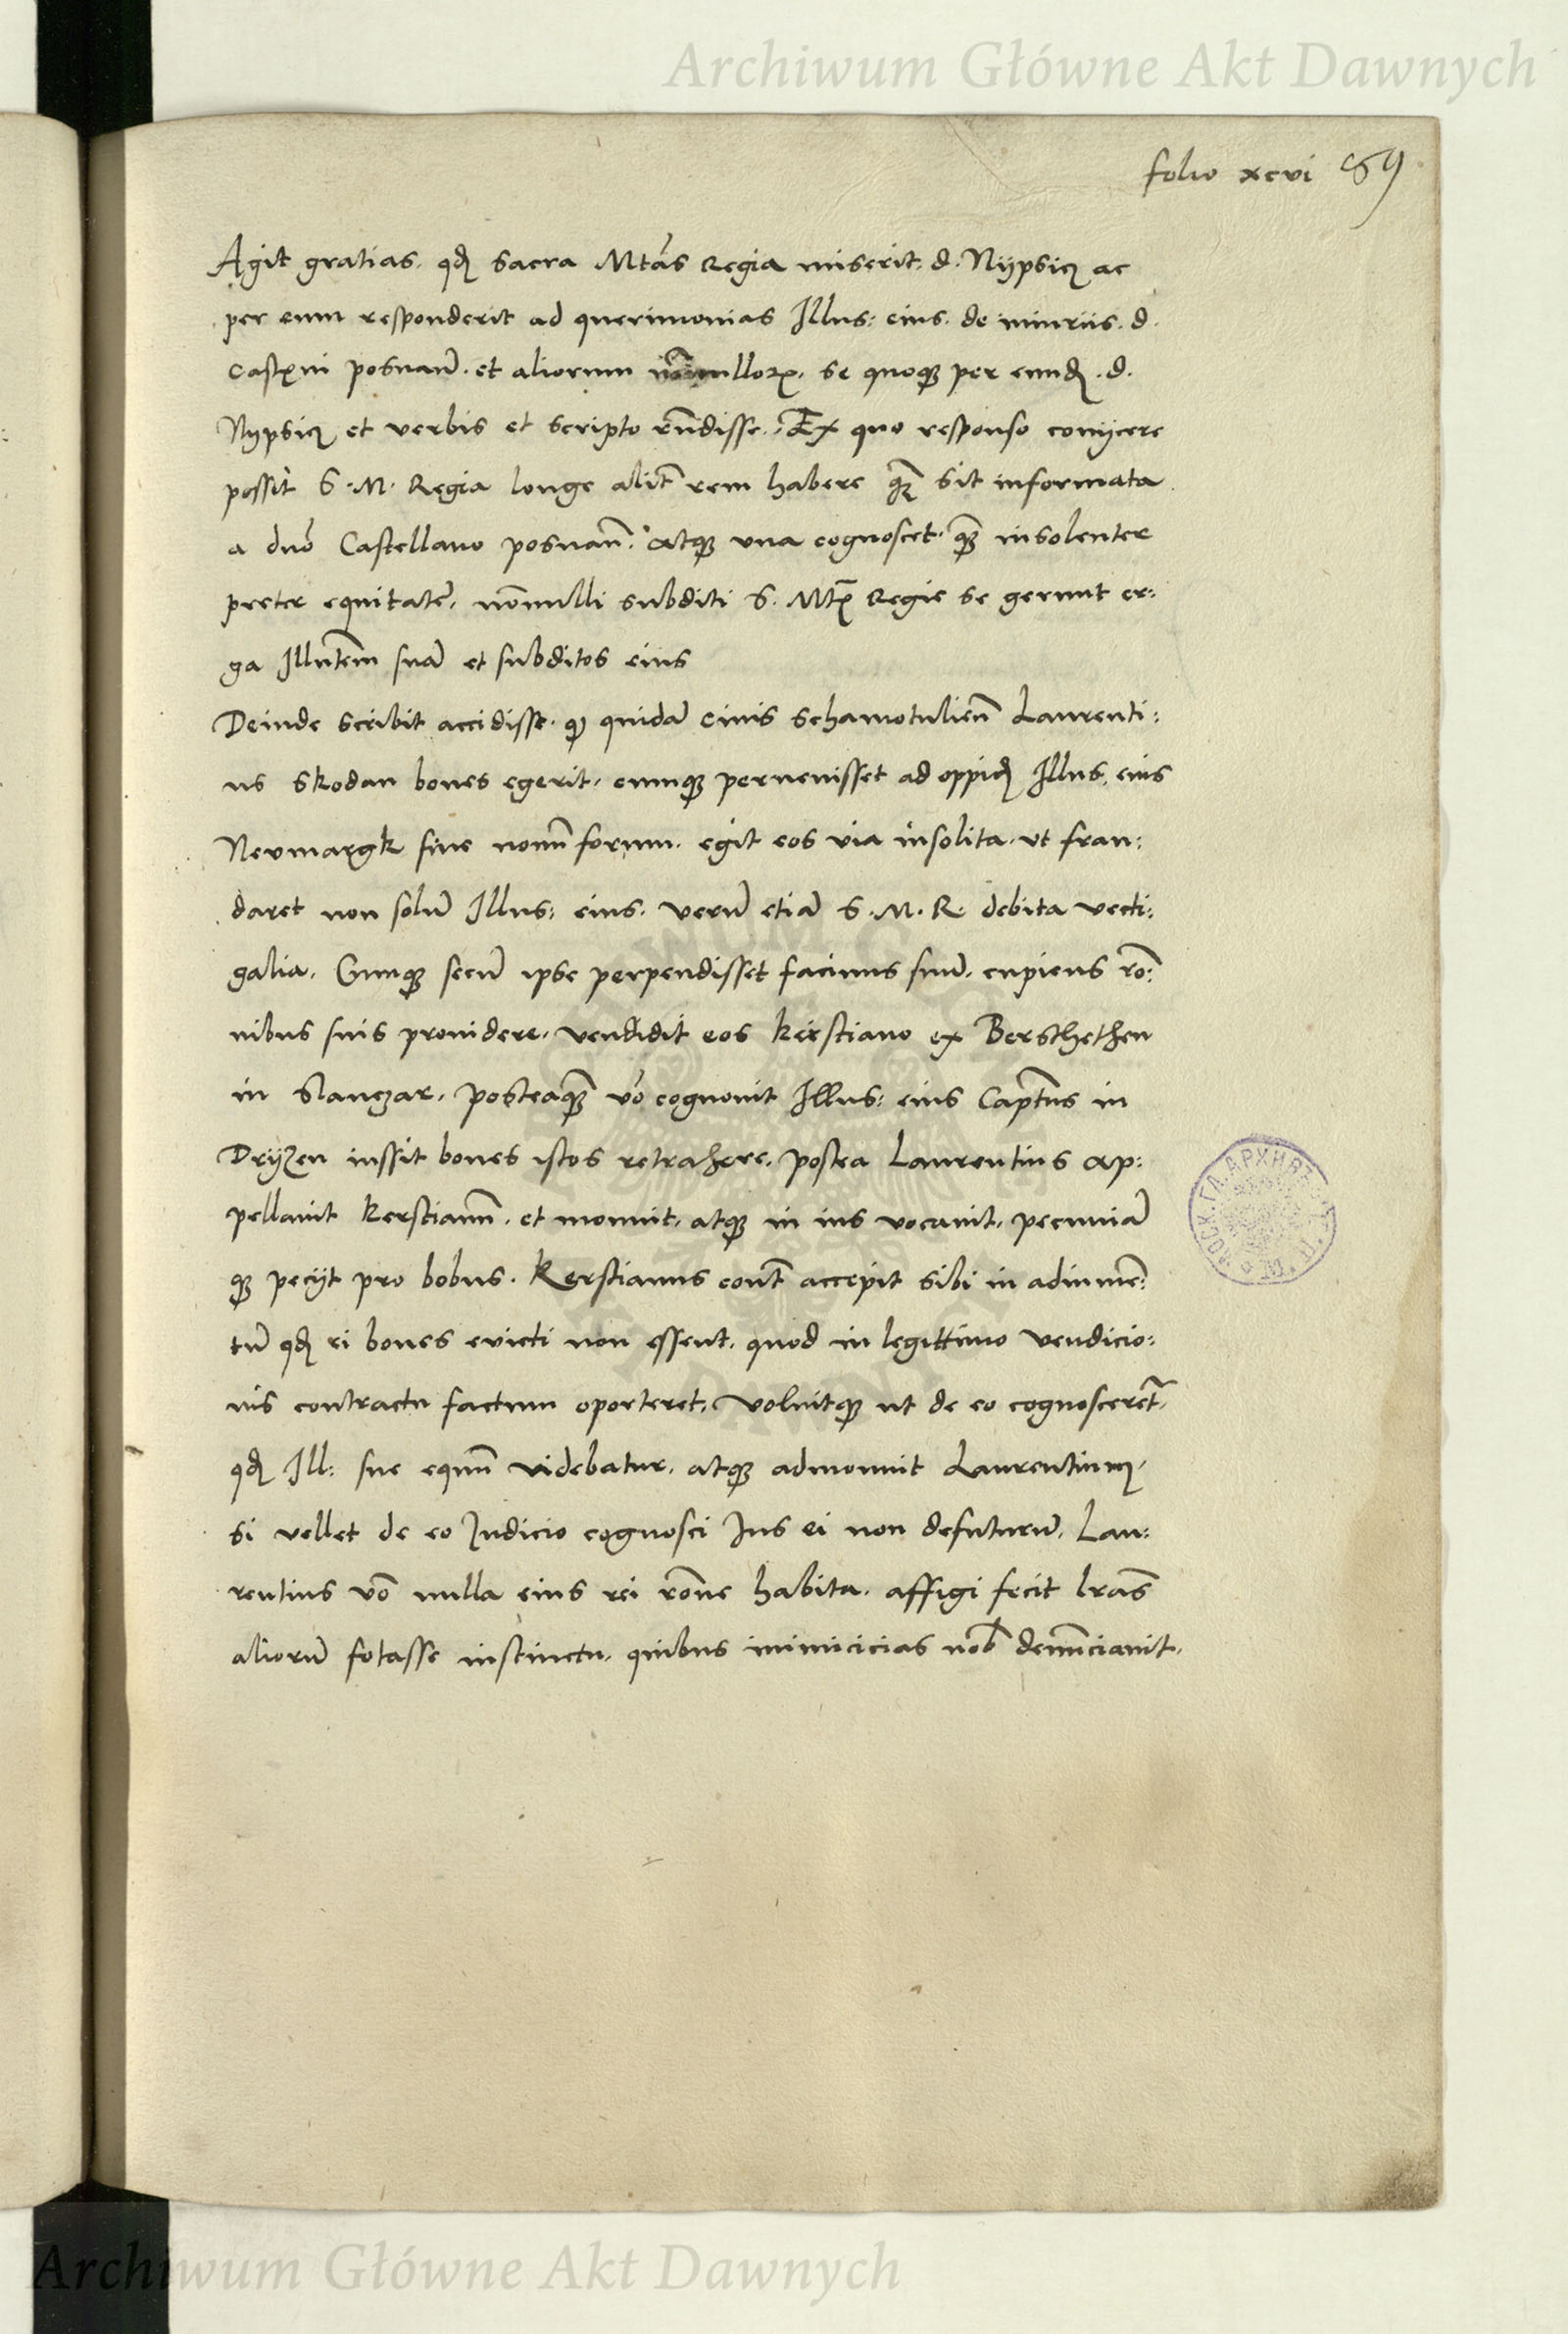 Archiwum Główne Akt Dawnych
folio xcvi 89
Agit gratias. qđ sacra Mtãs Regia miserit. d. Nypsicz ac
per eum responderit ad querimonias Illus: eius. de iniuriis. d.
castxni posnañ. et aliorum nõnullorꝝ. se quoqꝫ per eundẽ. d.
Nypsicz et verbis et scripto rñdisse. Ex quo responso conijcere
possit S. M. Regia longe alitr̃ rem habere qꝫ̃ sit informata
a dnõ Castellano posnañ. atqꝫ vna cognoscet. qꝫ̃ insolenter
preter equitatẽ. nõnulli subditi S. Mtꝭ Regie se gerunt er:
ga Illu̇tem̃ suã et subditos eius
Deinde scribit accidisse. qꝫ quidã ciuis schamotulieñ Laurenti:
us Skodan boues egerit. cumqꝫ peruenisset ad oppidũ Illus. eius
Neumargk siue nouũ forum. egit eos via insolita. vt frau:
daret non solũ Illus: eius. verũ etiã S. M. R. debita vecti:
galia. Cumqꝫ secũ ipse perpendisset facinus suũ. cupiens rõ:
nibus suis prouidere. vendidit eos kirstiano ex Bersthethen
in Slanczar. posteaqꝫ̃ võ cognouit Illus: eius Capt̃us in
Drijzen iussit boues istos retrahere. postea Laurentius ap:
pellauit kerstianũ. et monuit. atqꝫ in ius vocauit. pecuniã
qꝫ pecijt pro bobus. kerstianus cont̃ accepit sibi in adiumẽ:
tũ qđ ei boues evicti non essent. quod in legittimo vendicio:
nis contractu factum oporteret. voluitqꝫ ut de eo cognosceret̃.
qđ Ill: sue equũ videbatur. atqꝫ admonuit Laurentium.
si vellet de eo Judicio cognosci Jus ei non defuturũ. Lau:
rentius võ nulla eius rei rõne habita. affigi fecit lrãs
aliorũ fotasse instinctu. quibus inimicicias nob̃ denũciauit.
Archiwum Główne Akt Dawnych